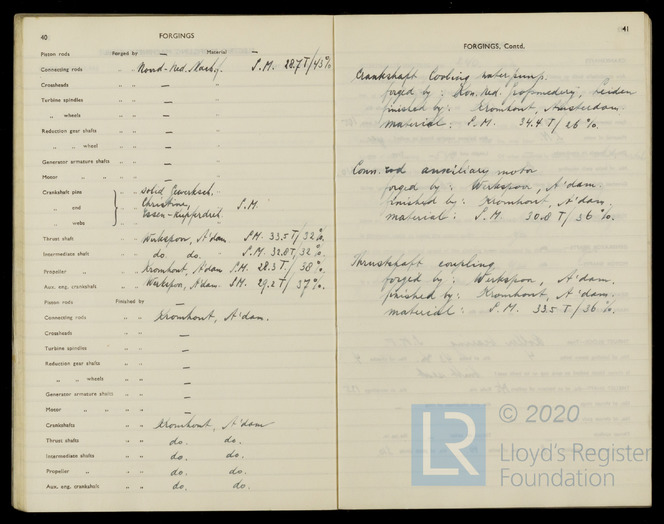 40
FORGINGS
Piston rods Forged by — Material —
Connecting rods " " Noord-Ned. Mach. S.M. 28.7 T/43%
Crossheads " " — "
Turbine spindles " " — "
" wheels " " — "
Reduction gear shafts " " — "
" " wheel " " — "
Generator armature shafts " " — "
Motor " " " — "
Crankshaft pins " " solid Gewerksch.
" end " " Christine, S.M.
" webs " " Essen-Kupferdreh
Thrust shaft " " Werkspoor, A'dam S.M. 33.5 T/32%.
Intermediate shaft " " do. do. S.M. 32.8 T, 32%.
Propeller " " " Kromhout, A'dam S.M. 28.3 T/38%.
Aux. eng. crankshaft " " Werkspoor, A'dam. S.M. 29.2 T/37%.
Piston rods Finished by —
Connecting rods " " Kromhout, A'dam.
Crossheads " " —
Turbine spindles " " —
Reduction gear shafts " " —
" " wheels " " —
Generator armature shafts " " —
Motor " " " " —
Crankshafts " " Kromhout, A'dam
Thrust shafts " " do. do.
Intermediate shafts " " do. do.
Propeller " " " do. do.
Aux. eng. crankshaft " " do. do.
41
FORGINGS, Contd.
Crankshaft Cooling water pump.
forged by: Kon. Ned. Grofsmederij, Leiden
finished by: Kromhout, Amsterdam.
material: S.M. 34.4 T/26%.
Conn. rod auxiliary motor
forged by: Werkspoor, A'dam.
finished by: Kromhout, A'dam.
material: S.M. 30.8 T/36%.
Thrustshaft coupling
forged by: Werkspoor, A'dam.
finished by: Kromhout, A'dam.
material: S.M. 33.5 T/36%.
LR
© 2020
Lloyd's Register
Foundation